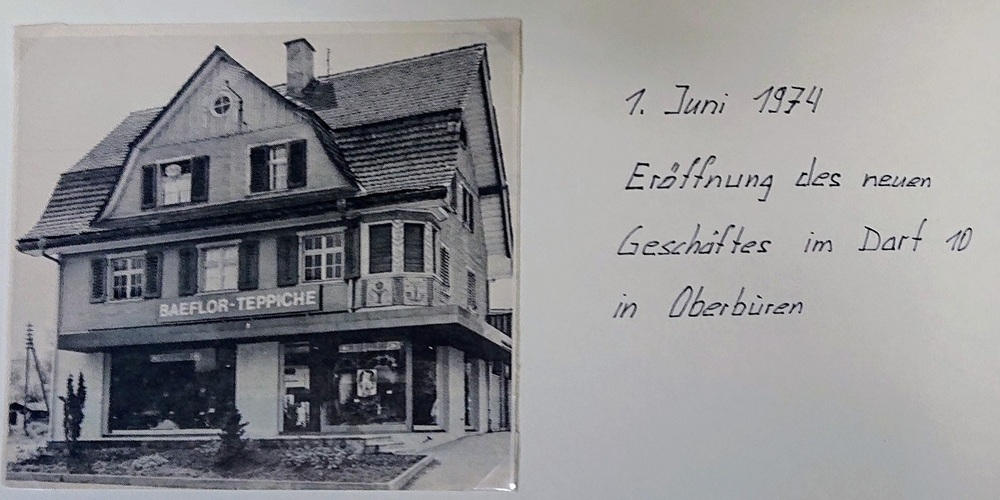 BAEFLOR-TEPPICHE
1. Juni 1974
Eröffnung des neuen
Geschäftes im Dorf 10
in Oberbüren